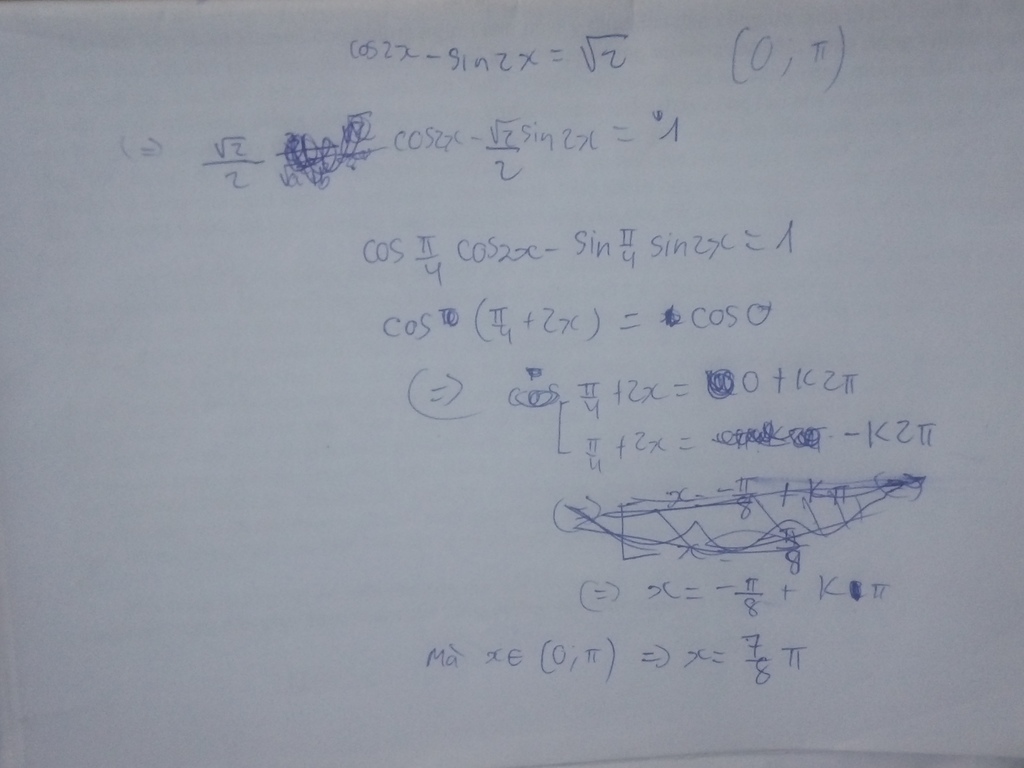 cos2x - sin2x = √2 (0; π)
(=) √2/2 cos2x - √2/2 sin2x = 1
cos π/4 cos2x - sin π/4 sin2x = 1
cos (π/4 + 2x) = cos0
(=) π/4 + 2x = 0 + K2π
π/4 + 2x = - K2π
(=) x = -π/8 + Kπ
Mà x ∈ (0; π) => x = 7/8 π